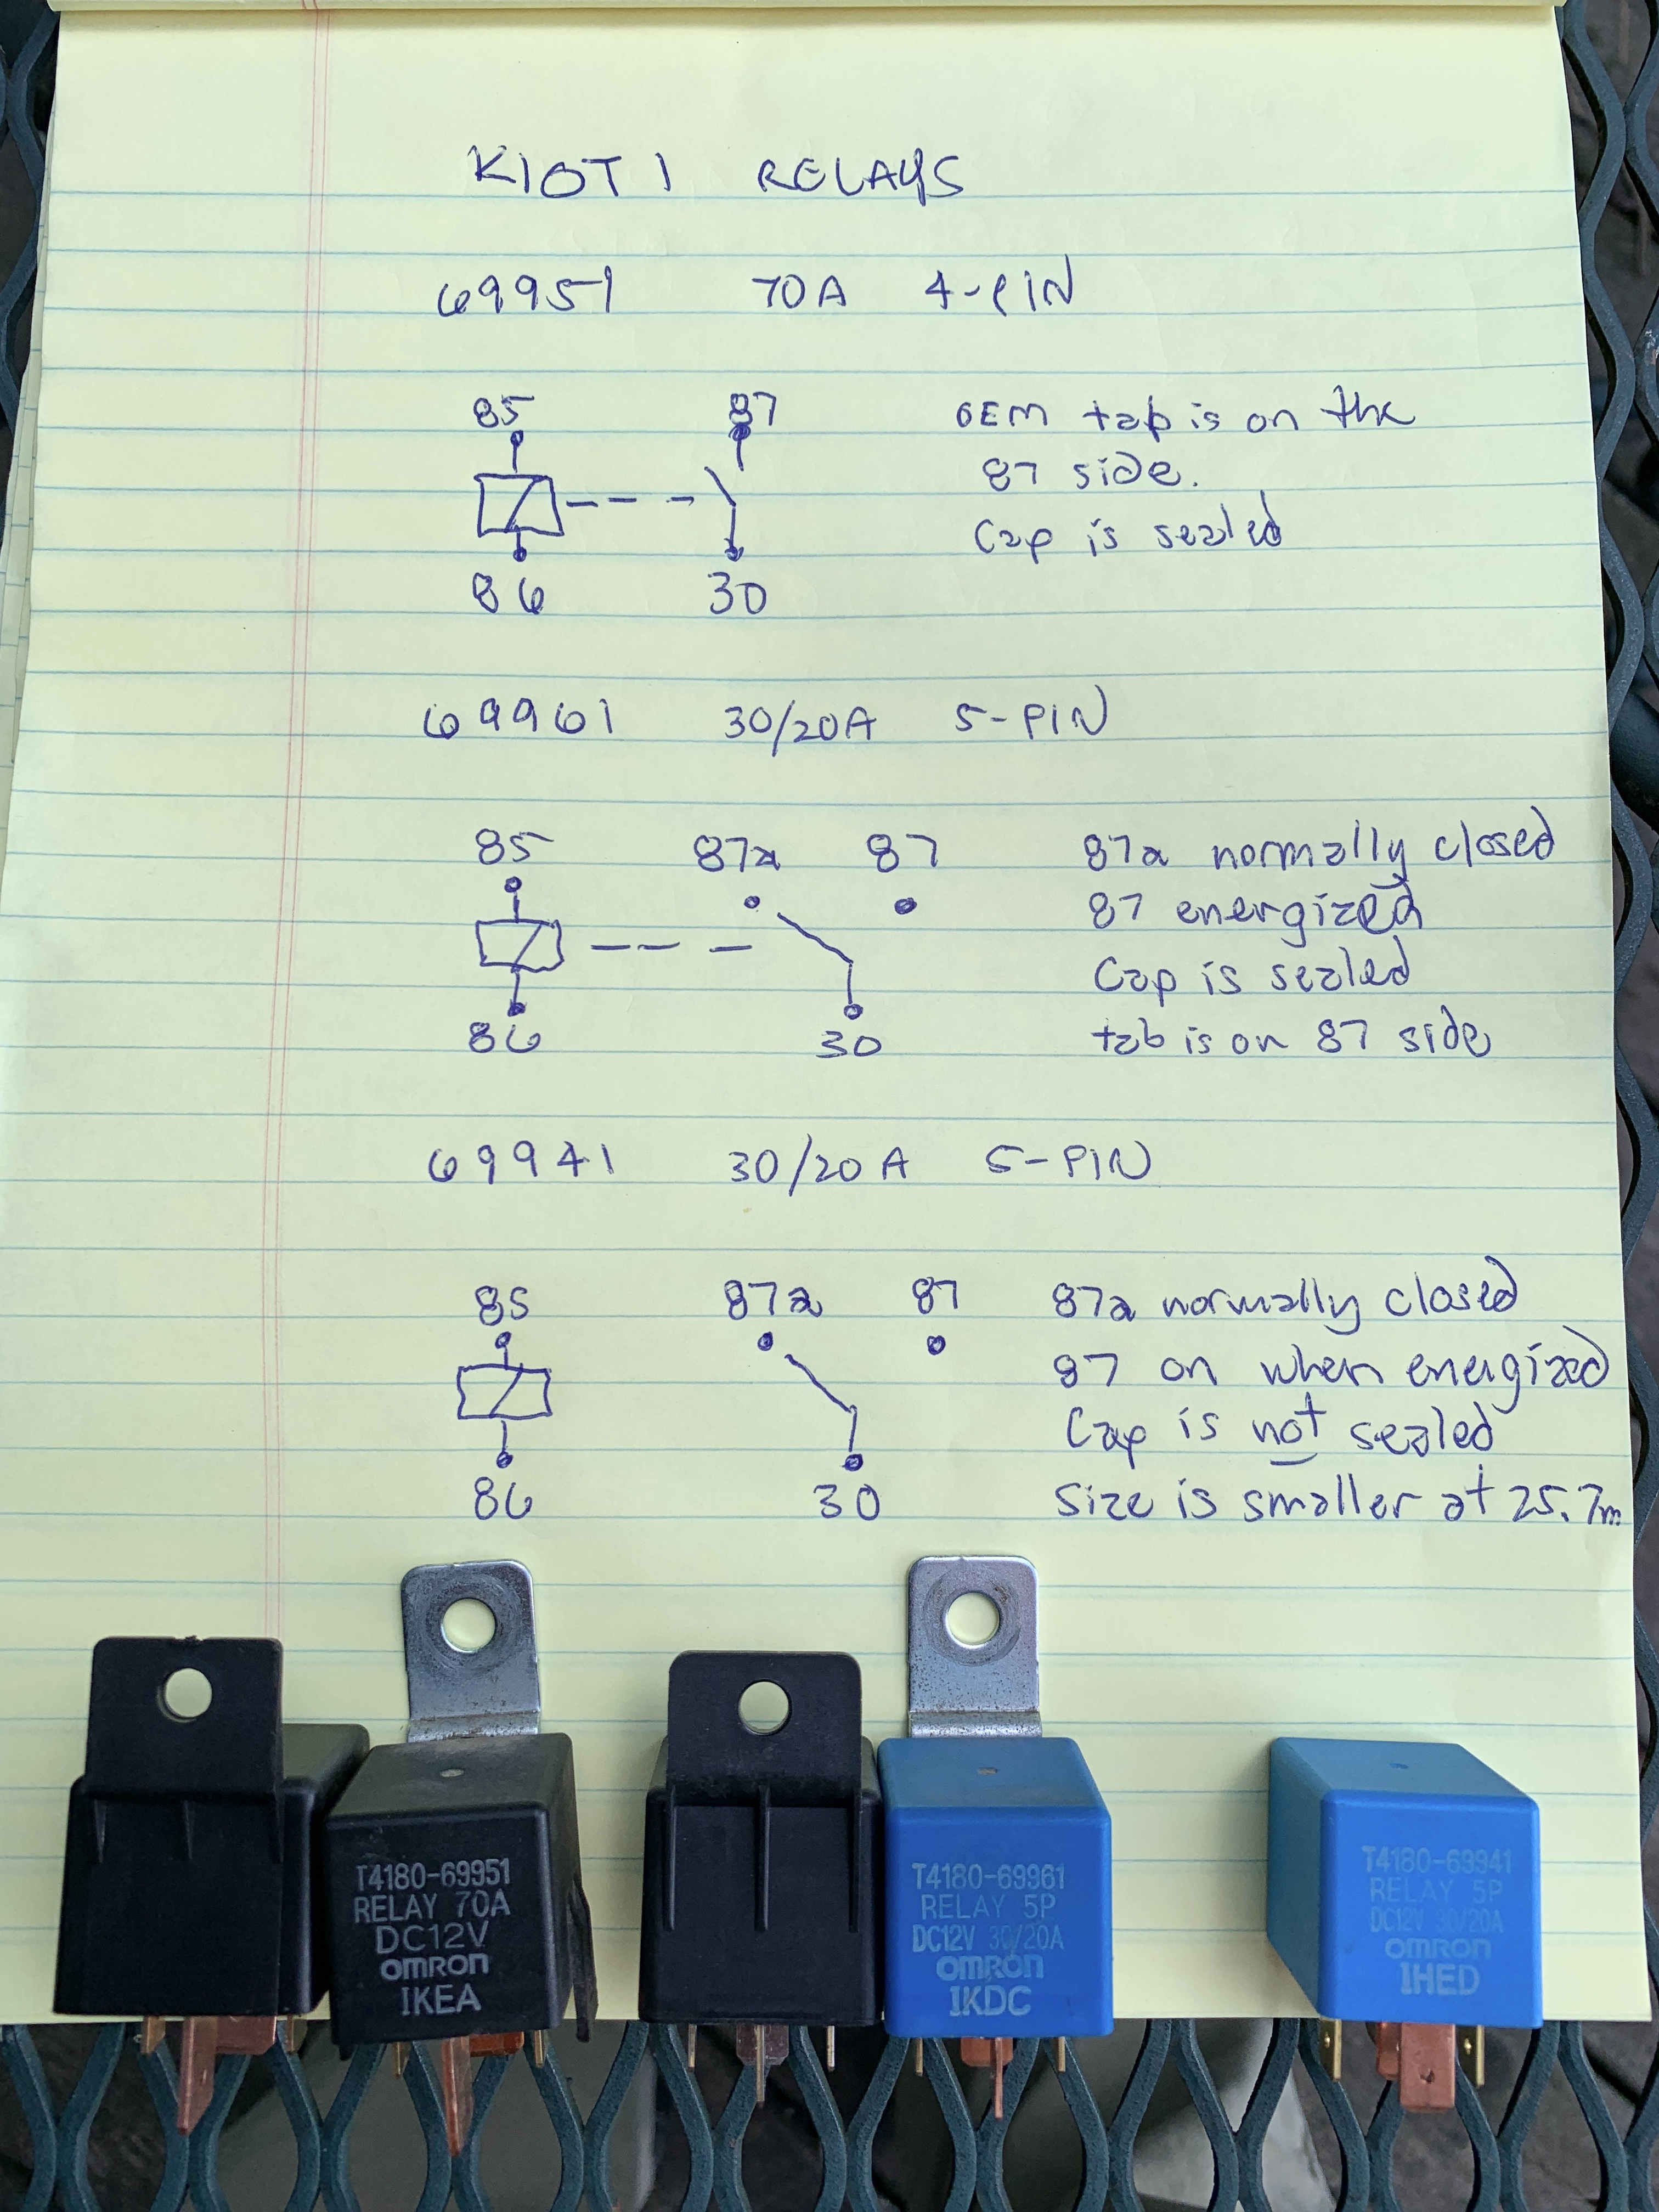 KIOTI RELAYS
69951 70A 4-PIN
85 87 OEM tab is on the
87 side.
Cap is sealed
86 30
69961 30/20A 5-PIN
85 87a 87 87a normally closed
87 energized
Cap is sealed
86 30 tab is on 87 side
69941 30/20A 5-PIN
85 87a 87 87a normally closed
87 on when energized
Cap is not sealed
86 30 Size is smaller at 25.7m
T4180-69951
RELAY 70A
DC12V
OMRON
IKEA
T4180-69961
RELAY 5P
DC12V 30/20A
OMRON
IKDC
T4180-69941
RELAY 5P
DC12V 30/20A
OMRON
IHED